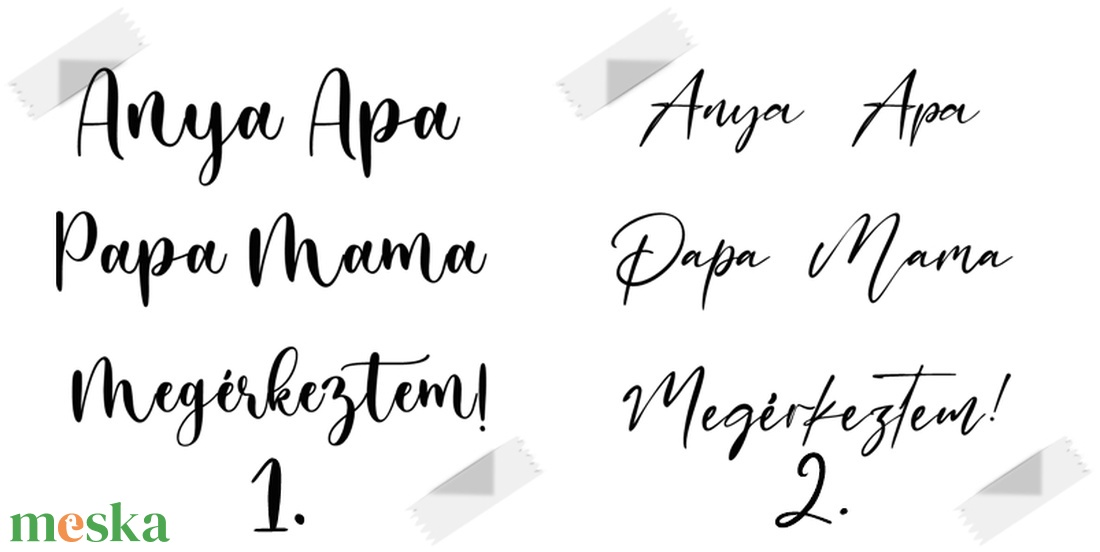 Anya Apa
Papa Mama
Megérkeztem!
1.
Anya Apa
Papa Mama
Megérkeztem!
2.
meska